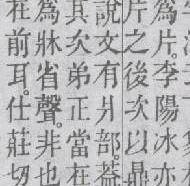 為片。李陽冰亦
片之後次以鼎
說文有爿部。葢
其次弟正當在
為牀省聲。非也
在前耳。仕莊切